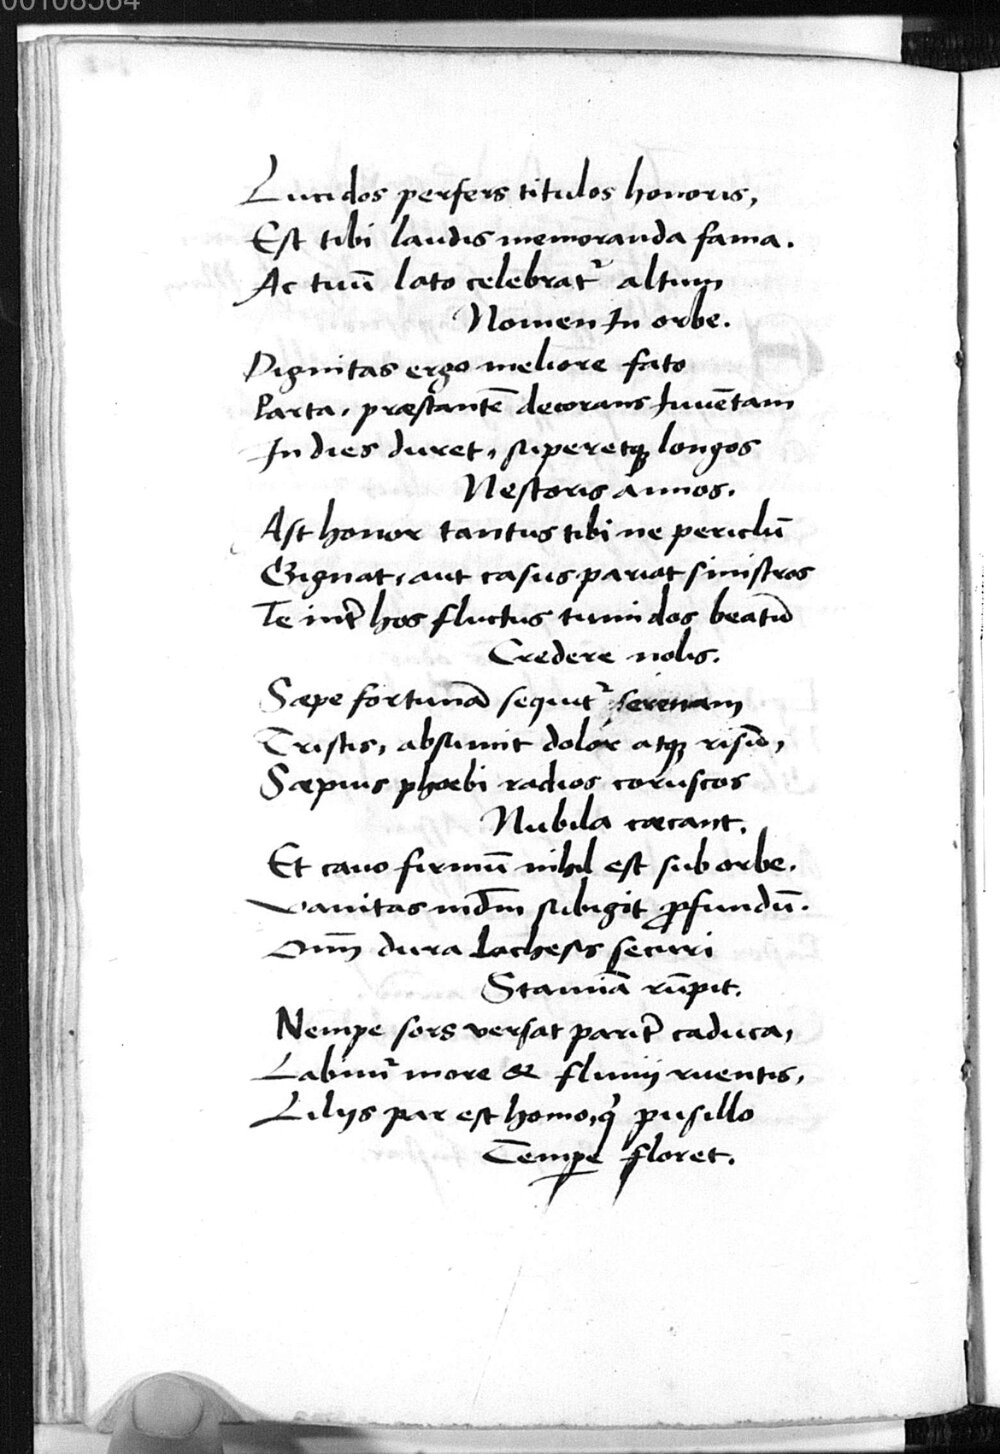 00108564
Lucidos perfers titulos honoris,
Est tibi laudis memoranda fama.
Ac tuū lato celebrat᷑ altum
Nomen In orbe.
Dignitas ergo meliore fato
Parta, præstantē decorans Iuuētam
In dies duret, superetq; longos
Nestoris annos.
Ast honor tantus tibi ne periclū
Gignat, aut casus pariat sinistros
Te int̃ hos fluctus tumidos beatū
Credere nolis.
Sæpe fortunā sequit᷑ serenam
Tristis, absumit dolor atq; risū,
Sæpius phœbi radios coruscos
Nubila cæcant.
Et cauo firmū nihil est sub orbe.
Vanitas mūdm subigit ꝓfundū.
Omī dura Lachesis securi
Stamīa rūpit.
Nempe sors versat parit̃ caduca,
Labimᷣ more & fluuij ruentis,
Lilijs par est homo, q̇ pusillo
Tempe floret.